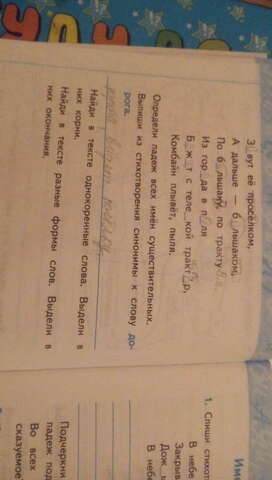 З_вут её просёлком,
А дальше — б_льшаком,
По б_льшому по тракту
Из гор_да в п_ля
Б_ж_т с теле_кой тракт_р,
Комбайн плывёт, пыля.
Определи падеж всех имён существительных.
Выпиши из стихотворения синонимы к слову до-
рога.
Найди в тексте однокоренные слова. Выдели в
них корни.
Найди в тексте разные формы слов. Выдели в
них окончания.
1. Спиши стихот
В небе
Закрыв
Дож
В небе
Подчеркни
падеж под
Во всех
сказуемое